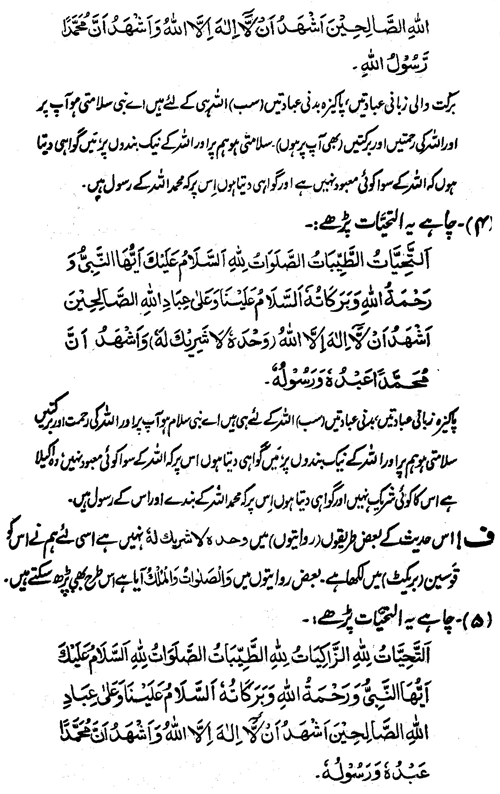 اللهِ الصَّالِحِيْنَ اَشْهَدُ اَنْ لَّآ اِلٰهَ اِلَّا اللهُ وَاَشْهَدُ اَنَّ مُحَمَّدًا
رَّسُوْلُ اللهِ۔
برکت والی زبانی عبادتیں، پاکیزہ بدنی عبادتیں (سب) اللہ ہی کے لئے ہیں اے نبی سلامتی ہو آپ پر
اور اللہ کی رحمتیں اور برکتیں (بھی آپ پر ہوں)۔ سلامتی ہو ہم پر اور اللہ کے نیک بندوں پر، میں گواہی دیتا
ہوں کہ اللہ کے سوا کوئی معبود نہیں ہے اور گواہی دیتا ہوں اِس پر کہ محمد اللہ کے رسول ہیں۔
(۴)۔ چاہے یہ التحیّات پڑھے:۔
اَلتَّحِيَّاتُ الطَّيِّبَاتُ الصَّلَوَاتُ لِلهِ اَلسَّلَامُ عَلَيْكَ اَيُّهَا النَّبِيُّ وَ
رَحْمَةُ اللهِ وَبَرَكَاتُهٗ اَلسَّلَامُ عَلَيْنَا وَعَلٰى عِبَادِ اللهِ الصَّالِحِيْنَ
اَشْهَدُ اَنْ لَّآ اِلٰهَ اِلَّا اللهُ (وَحْدَهٗ لَا شَرِيْكَ لَهٗ) وَاَشْهَدُ اَنَّ
مُحَمَّدًا عَبْدُهٗ وَرَسُوْلُهٗ۔
پاکیزہ زبانی عبادتیں، بدنی عبادتیں (سب) اللہ کے لئے ہی ہیں اے نبی سلام ہو آپ پر اور اللہ کی رحمت اور برکتیں
سلامتی ہو ہم پر اور اللہ کے نیک بندوں پر، میں گواہی دیتا ہوں اس پر کہ اللہ کے سوا کوئی معبود نہیں، وہ اکیلا
ہے اس کا کوئی شریک نہیں اور گواہی دیتا ہوں اِس پر کہ محمد اللہ کے بندے اور اس کے رسول ہیں۔
ف ! اس حدیث کے بعض طریقوں (روایتوں) میں وحده لا شريك لهٗ نہیں ہے اسی لئے ہم نے اس کو
قوسین (بریکٹ) میں لکھا ہے۔ بعض روایتوں میں وَالصَّلَوَاتُ وَالْمُلْكُ آیا ہے اس طرح بھی پڑھ سکتے ہیں۔
(۵)۔ چاہے یہ التحیّات پڑھے:۔
اَلتَّحِيَّاتُ لِلهِ الزَّاكِيَاتُ لِلهِ الطَّيِّبَاتُ الصَّلَوَاتُ لِلهِ اَلسَّلَامُ عَلَيْكَ
اَيُّهَا النَّبِيُّ وَرَحْمَةُ اللهِ وَبَرَكَاتُهٗ اَلسَّلَامُ عَلَيْنَا وَعَلٰى عِبَادِ
اللهِ الصَّالِحِيْنَ اَشْهَدُ اَنْ لَّآ اِلٰهَ اِلَّا اللهُ وَاَشْهَدُ اَنَّ مُحَمَّدًا
عَبْدُهٗ وَرَسُوْلُهٗ۔